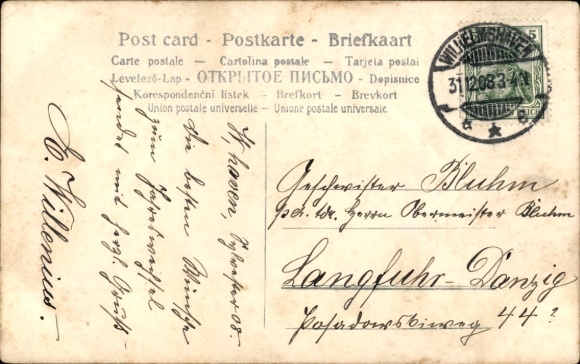 Post card - Postkarte - Briefkaart
Carte postale — Cartolina postale — Tarjeta postal
Levelező-Lap - ОТКРЫТОЕ ПИСЬМО - Dopisnice
Korespondenční lístek — Brefkort — Brevkort
Union postale universelle — Unione postale universale
WILHELMSHAVEN
31.12.08.3-4N
a ★ a
5
W'haven, Sylvester 08.
Die besten Wünsche
zum Jahreswechsel
sendet mit herzl. Gruß
E. Willenius.
Geschwister Bluhm
Herrn Obermeister Bluhm
Langfuhr-Danzig
Posadowskiweg 44?